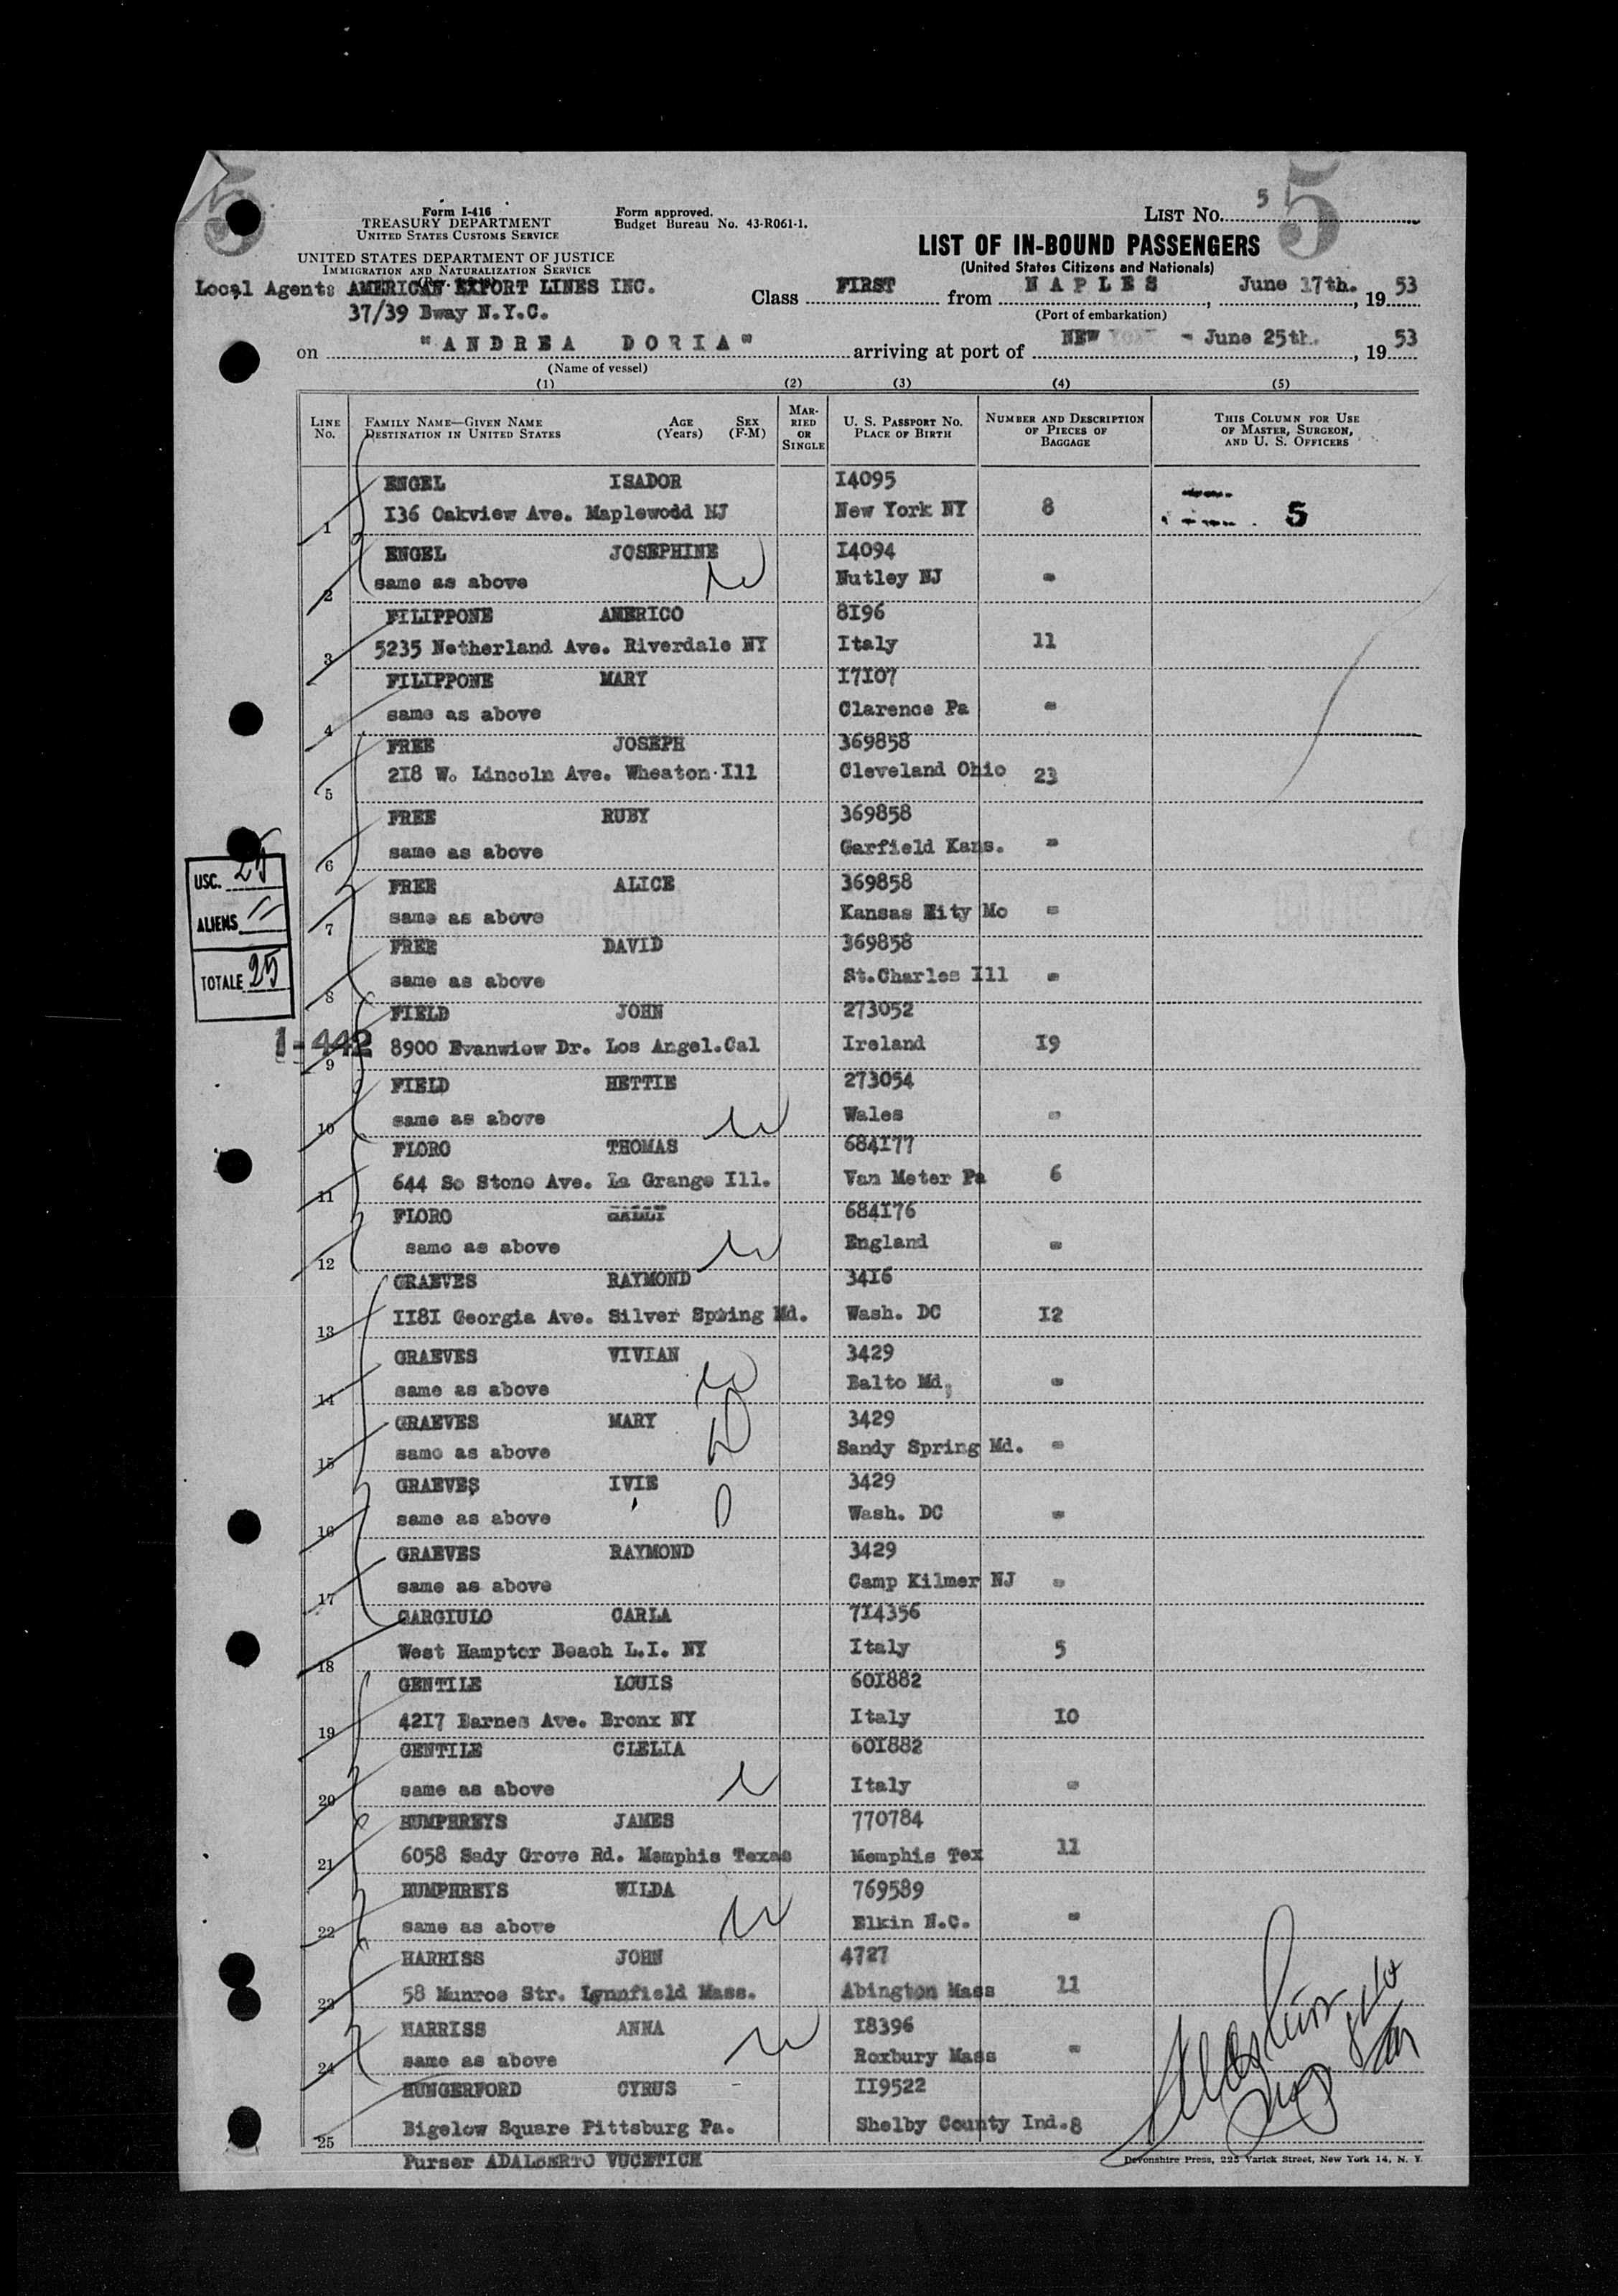 5
Form I-416
TREASURY DEPARTMENT
UNITED STATES CUSTOMS SERVICE
Form approved.
Budget Bureau No. 43-R061-1.
LIST NO. 5
5
UNITED STATES DEPARTMENT OF JUSTICE
IMMIGRATION AND NATURALIZATION SERVICE
LIST OF IN-BOUND PASSENGERS
(United States Citizens and Nationals)
Local Agents AMERICAN EXPORT LINES INC.
37/39 Bway N.Y.C.
Class FIRST from NAPLES, June 17th., 1953
(Port of embarkation)
on "ANDREA DORIA" arriving at port of NEW YORK - June 25th., 1953
(Name of vessel)
(1) (2) (3) (4) (5)
LINE No. FAMILY NAME—GIVEN NAME DESTINATION IN UNITED STATES AGE (Years) SEX (F-M) MARRIED OR SINGLE U. S. PASSPORT NO. PLACE OF BIRTH NUMBER AND DESCRIPTION OF PIECES OF BAGGAGE THIS COLUMN FOR USE OF MASTER, SURGEON, AND U. S. OFFICERS
ENGEL ISADOR I4095
1 I36 Oakview Ave. Maplewodd NJ New York NY 8 5
ENGEL JOSEPHINE I4094
2 same as above Nutley NJ -
FILIPPONE AMERICO 8I96
3 5235 Netherland Ave. Riverdale NY Italy 11
FILIPPONE MARY I7I07
4 same as above Clarence Pa -
FREE JOSEPH 369858
5 2I8 W. Lincoln Ave. Wheaton Ill Cleveland Ohio 23
FREE RUBY 369858
6 same as above Garfield Kans. -
FREE ALICE 369858
7 same as above Kansas City Mo -
FREE DAVID 369858
8 same as above St.Charles Ill -
FIELD JOHN 273052
9 8900 Evanwiew Dr. Los Angel.Cal Ireland I9
FIELD HETTIE 273054
10 same as above Wales -
FLORO THOMAS 684I77
11 644 So Stone Ave. La Grange Ill. Van Meter Pa 6
FLORO 684I76
12 same as above England -
GRAEVES RAYMOND 34I6
13 II8I Georgia Ave. Silver Spring Md. Wash. DC I2
GRAEVES VIVIAN 3429
14 same as above Balto Md, -
GRAEVES MARY 3429
15 same as above Sandy Spring Md. -
GRAEVES IVIE 3429
16 same as above Wash. DC -
GRAEVES RAYMOND 3429
17 same as above Camp Kilmer NJ -
GARGIULO CARLA 7I4356
18 West Hamptor Beach L.I. NY Italy 5
GENTILE LOUIS 60I882
19 42I7 Barnes Ave. Bronx NY Italy IO
GENTILE CLELIA 60I882
20 same as above Italy -
HUMPHREYS JAMES 770784
21 6058 Sady Grove Rd. Memphis Texas Memphis Tex 11
HUMPHREYS WILDA 769589
22 same as above Elkin N.C. -
HARRISS JOHN 4727
23 58 Munroe Str. Lynnfield Mass. Abington Mass 11
HARRISS ANNA I8396
24 same as above Roxbury Mass -
HUNGERFORD CYRUS II9522
25 Bigelow Square Pittsburg Pa. Shelby County Ind. 8
Purser ADALBERTO VUCETICH
Devonshire Press, 225 Varick Street, New York 14, N. Y.
USC. 25
ALIENS =
TOTALE 25
1-442